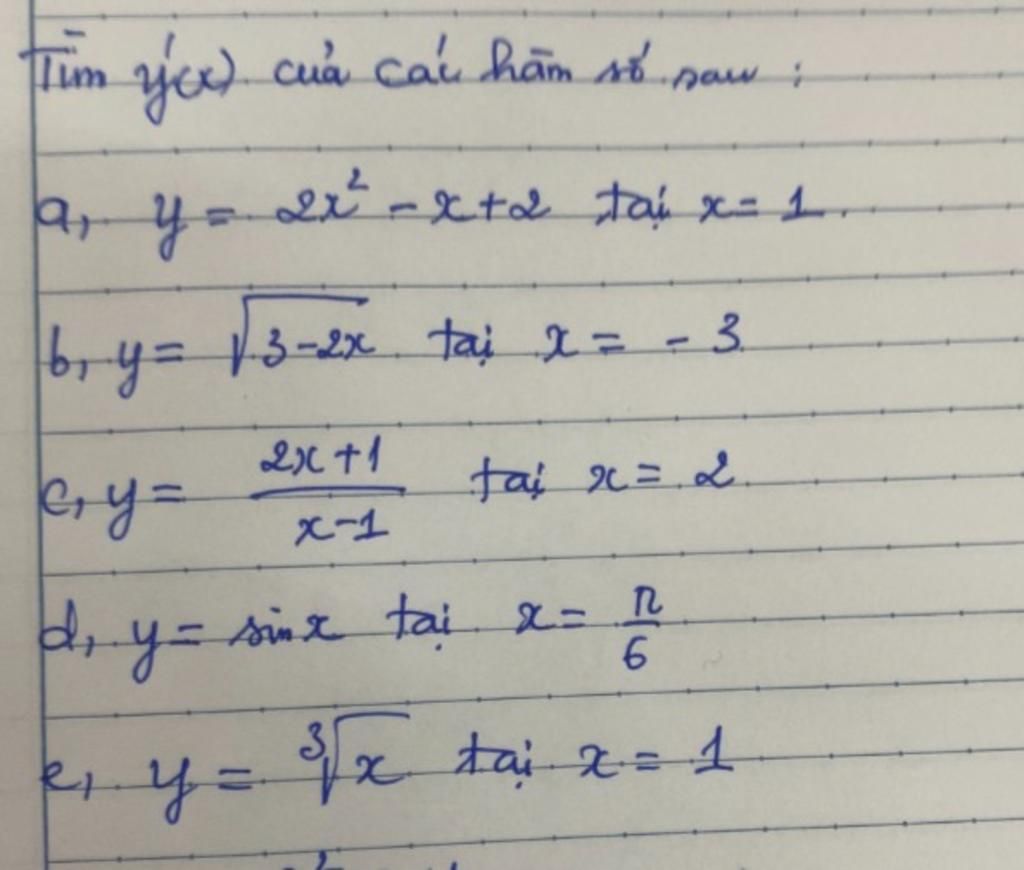 Tìm y'(x) của các hàm số sau :
a, y = 2x² - x + 2 tại x = 1.
b, y = √(3-2x) tại x = - 3
c, y = (2x+1)/(x-1) tại x = 2
d, y = sin x tại x = π/6
e, y = ³√x tại x = 1